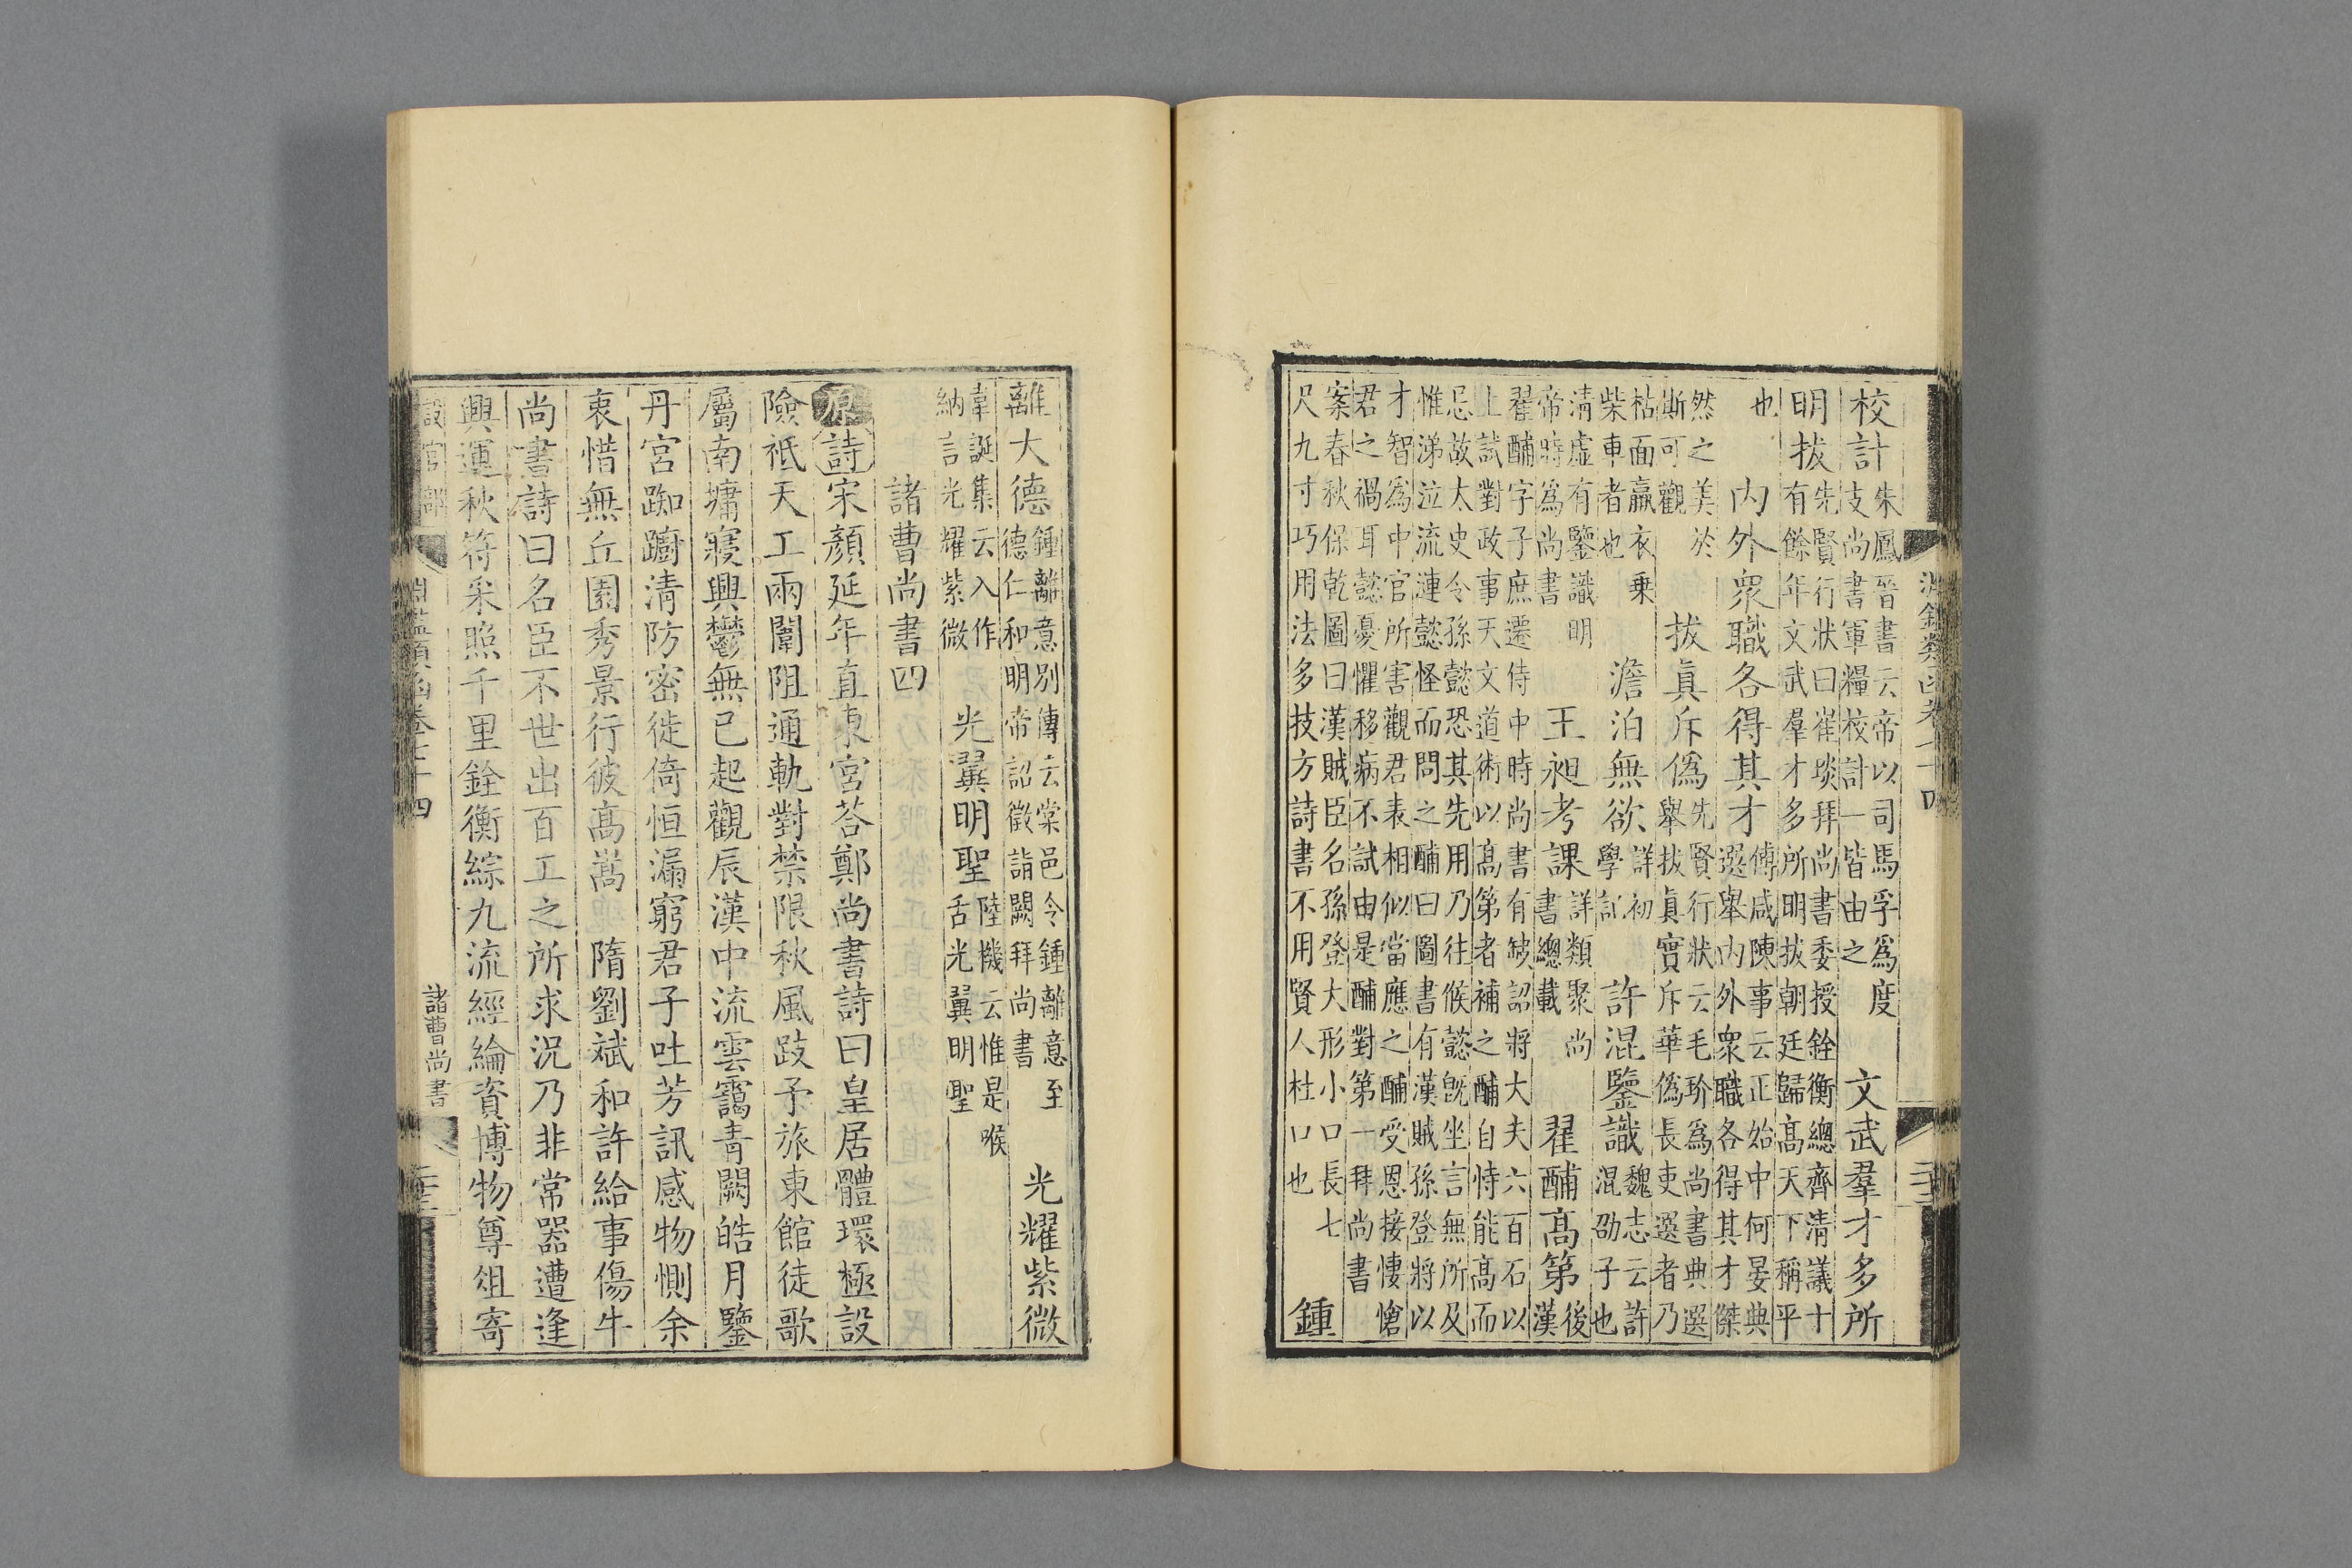 淵鑑類函卷七十四
校計朱鳳晉書云帝以司馬孚爲度支尚書軍糧校計一皆由之 文武羣才多所
明拔先賢行狀曰崔琰拜尚書委授銓衡總齊清議十有餘年文武羣才多所明拔朝廷歸高天下稱平
也 內外衆職各得其才傅咸陳事云正始中何晏典選舉內外衆職各得其才傑
然之美於斯可觀 拔眞斥僞先賢行狀云毛玠爲尚書典選舉拔眞實斥華僞長吏選者乃
枯面羸衣乗柴車者也 澹泊無欲詳初學記 許混鑒識魏志云許混劭子也
清虛有鑒識明帝時爲尚書 王昶考課詳類聚尚書總載 翟酺高第後漢
翟酺字子庶遷侍中時尚書有缺詔將大夫六百石以上試對政事天文道術以高第者補之酺自恃能高而
忌故太史令孫懿恐其先用乃往候懿旣坐言無所及惟涕泣流連懿怪而問之酺曰圖書有漢賊孫登將以
才智爲中官所害觀君表相似當應之酺受恩接悽愴君之禍耳懿憂懼移病不試由是酺對第一拜尚書
案春秋保乾圖曰漢賊臣名孫登大形小口長七尺九寸巧用法多技方詩書不用賢人杜口也 鍾
離大德鍾離意別傳云棠邑令鍾離意至德仁和明帝詔徵詣闕拜尚書 光耀紫微
韋誕集云入作納言光耀紫微 光翼明聖陸機云惟是喉舌光翼明聖
諸曹尚書四
原詩宋顏延年直東宮荅鄭尚書詩曰皇居體環極設
險祗天工兩闈阻通軌對禁限秋風跂予旅東館徒歌
屬南墉寢興鬱無已起觀辰漢中流雲靄青闕皓月鑒
丹宮踟躕清防密徙倚恒漏窮君子吐芳訊感物惻余
衷惜無丘園秀景行彼高嵩 隋劉斌和許給事傷牛
尚書詩曰名臣不世出百工之所求況乃非常器遭逢
興運秋符采照千里銓衡綜九流經綸資博物尊俎寄
設官部 淵鑑類函卷七十四 諸曹尚書